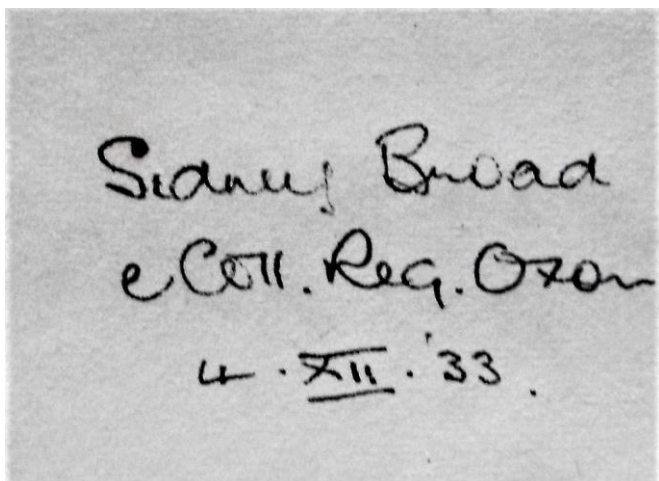 Sidney Broad
e Coll. Reg. Oxon
4. XII. '33.